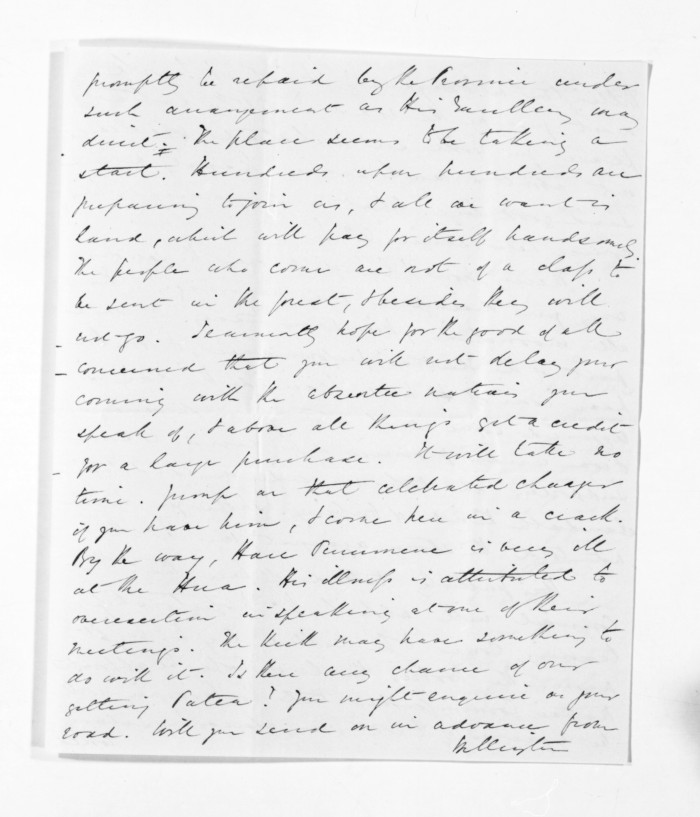 promptly be repaid by the Province under
such arrangement as His Excellency may
direct. The place seems to be taking a
start. Hundreds upon hundreds are
preparing to join us, & all we want is
land, which will pay for itself handsomely.
The people who come are not of a class to
be sent in the forest, & besides they will
not go. I earnestly hope for the good of all
concerned that you will not delay your
coming with the absentee natives you
speak of, & above all things get a credit
for a large purchase. It will take no
time. Jump on that celebrated charger
if you have him, & come here in a crack.
By the way, Hare is very ill
at the Hua. His illness is attributed to
overexertion in speaking at one of their
meetings. The may have something to
do with it. Is there any chance of our
getting Patea? You might enquire on your
road. Will you send on in advance from
Wellington